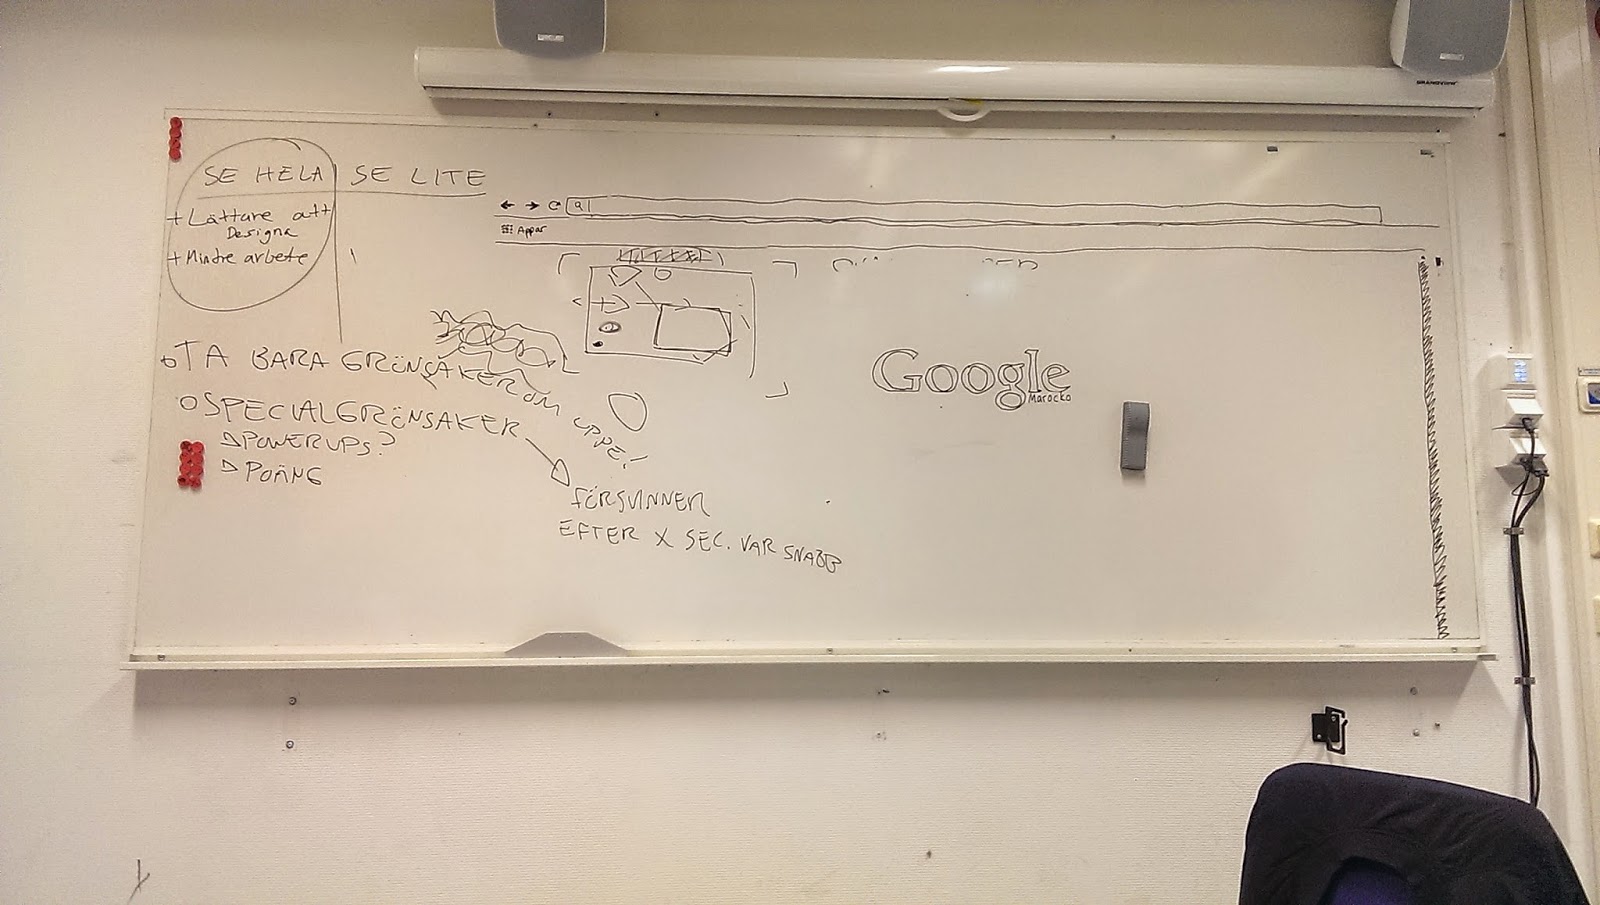 SE HELA
SE LITE
+ Lättare att
Designa
+ Mindre arbete
Appar
TA BARA GRÖNSAKER OM UPPE!
SPECIALGRÖNSAKER
POWERUPS?
POÄNG
FÖRSVINNER
EFTER X SEC. VAR SNABB
Google
Marocko